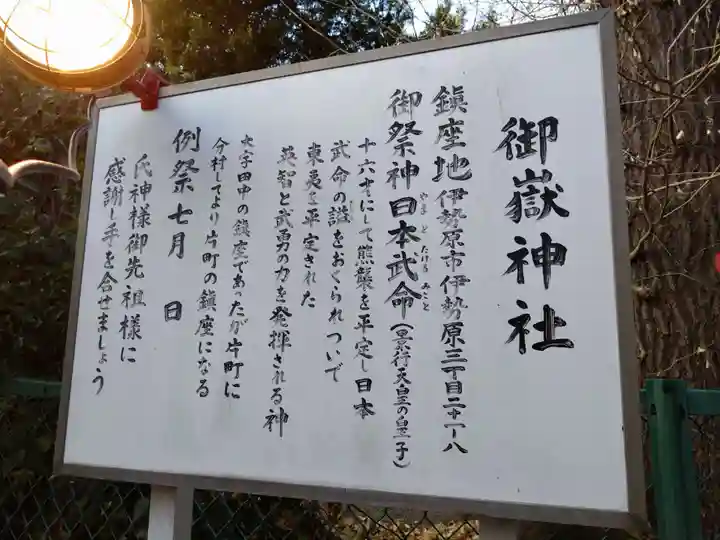 御嶽神社
鎮座地 伊勢原市伊勢原三丁目二十一ー八
御祭神 日本武命(景行天皇の皇子)
やまとたけるみこと
十六才にして熊襲を平定し日本
武命の諡をおくられついで
東夷を平定された
英智と武勇の力を発揮される神
大字田中の鎮座であったが片町に
分村してより片町の鎮座になる
例祭 七月 日
氏神様御先祖様に
感謝し手を合せましょう